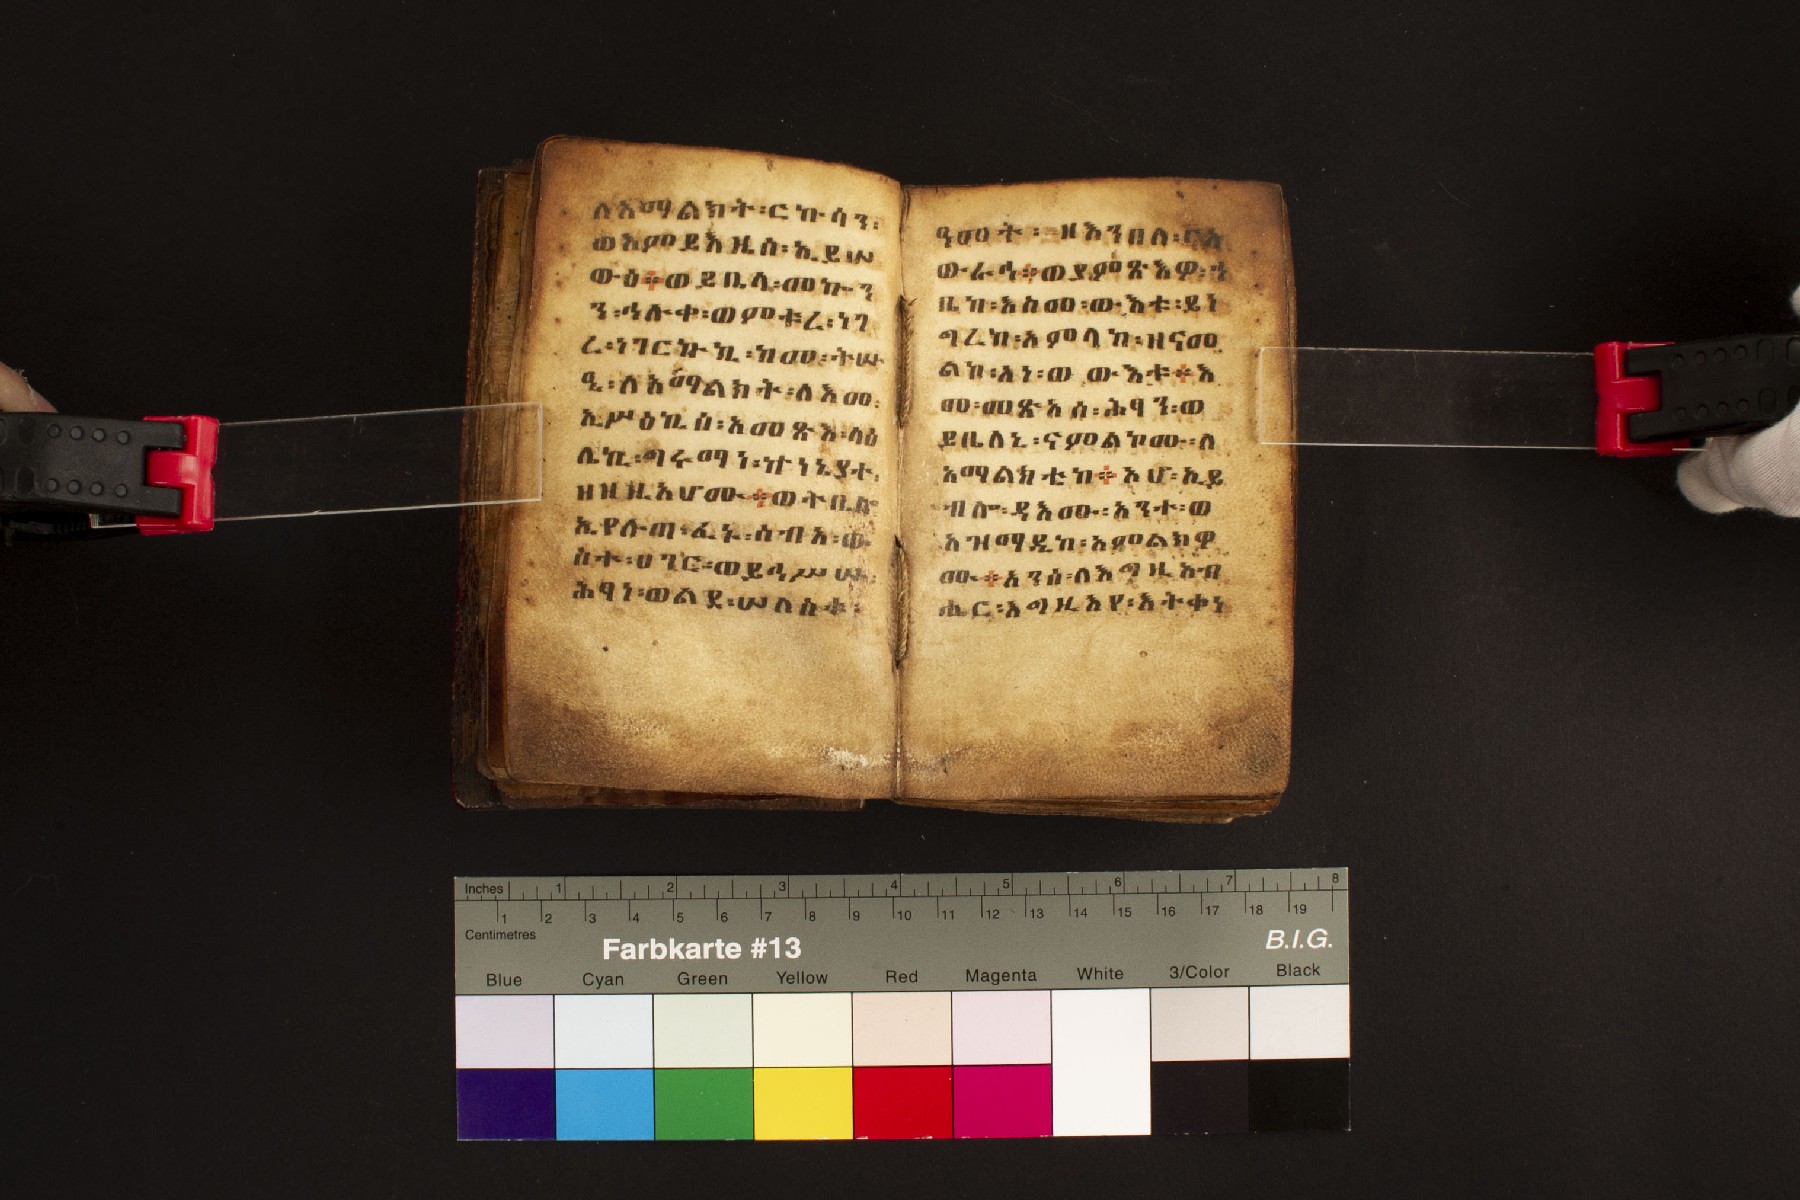 ለአማልክት፡ርኩሳን፡
ወእምይእዜሰ፡ኢይሡ
ውዕ፨ወይቤላ፡መኰን
ን፡ኅሉቀ፡ወምቱረ፡ነገ
ረ፡ነገርኩኪ፡ከመ፡ትሡ
ዒ፡ለአማልክት፡ለእመ፡
ኢሦዕኪሰ፡አመጽእ፡ላዕ
ሌኪ፡ግሩማነ፡
ወትቤሎ
ኢየሉጣ፡ፈኑ፡ሰብአ፡ው
ስተ፡ሀገር፡ወይኃሥሡ፡
ሕፃነ፡ወልደ፡ሠለስቱ፡
ዓመት፡ዘእንበለ፡
ውራኅ፨ወያምጽእዎ፡
ዜከ፡እስመ፡ውእቱ፡ይነ
ግረከ፡አምላከ፡ዘናመ
ልክ፡ለነ፡ው ውእቱ፨እ
መ፡መጽአ፡ሕፃን፡ወ
ይቤለኒ፡ናምልኮሙ፡ለ
አማልክቲከ፨አሆ፡ኢይ
ብሎ፡ዳእሙ፡አንተ፡ወ
አዝማዲከ፡አምልክዎ
ሙ፨አንሰ፡ለእግዚአብ
ሔር፡እግዚእየ፡እትቀነ
Inches 1 2 3 4 5 6 7 8
1 2 3 4 5 6 7 8 9 10 11 12 13 14 15 16 17 18 19
Centimetres
Farbkarte #13
B.I.G.
Blue Cyan Green Yellow Red Magenta White 3/Color Black